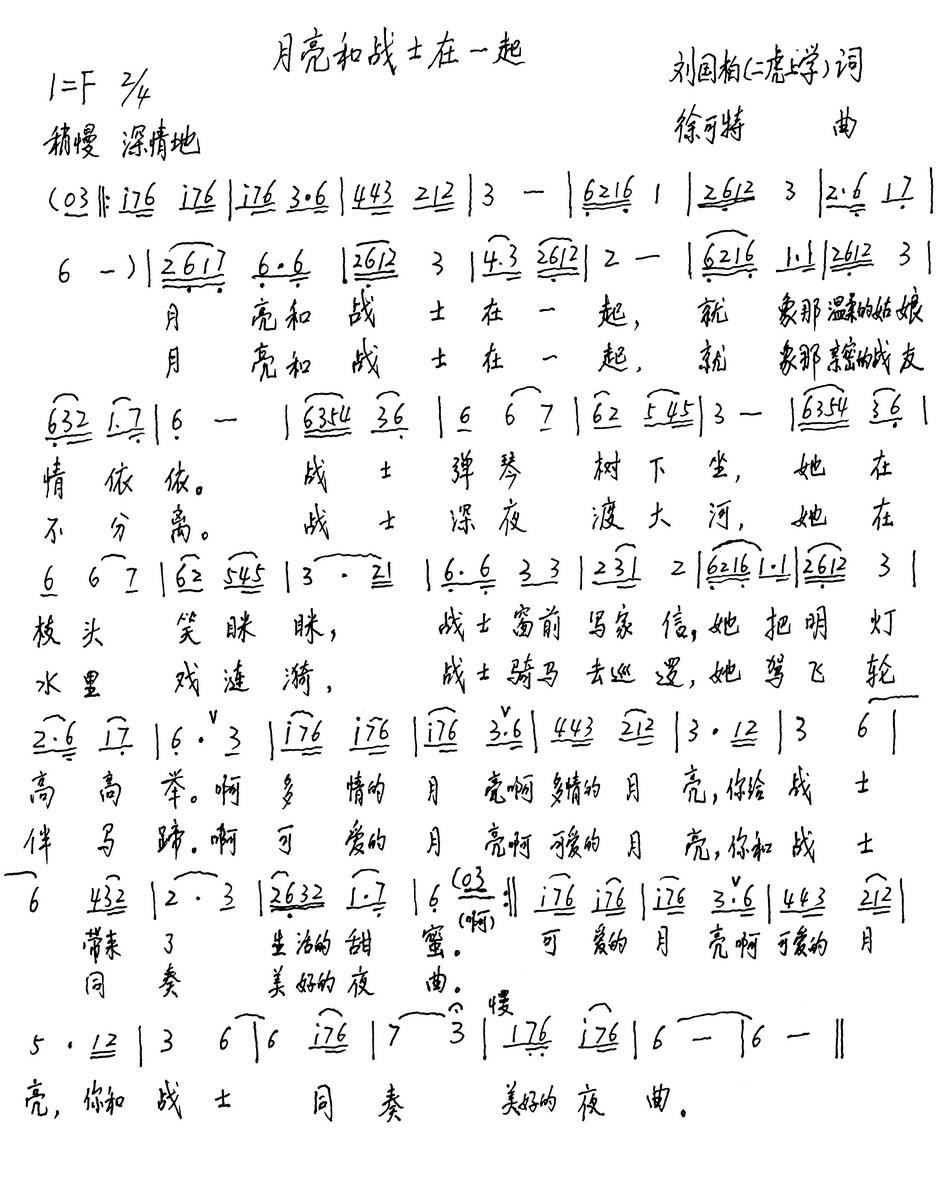 月亮和战士在一起
1=F 2/4
刘国柏(二虎上学)词
稍慢 深情地
徐可特 曲
(03‖: i76 i76 | i76 3·6 | 443 212 | 3 — | 6216 1 | 2612 3 | 2·6 17 |
6 —) | 2617 6·6 | 2612 3 | 4·3 2612 | 2 — | 6216 1·1 | 2612 3 |
月 亮和 战 士 在 一 起, 就 象那 温柔的姑娘
月 亮和 战 士 在 一 起, 就 象那 亲密的战友
632 1·7 | 6 — | 6354 36 | 6 6 7 | 62 545 | 3 — | 6354 36 |
情 依 依。 战 士 弹 琴 树 下 坐, 她 在
不 分 离。 战 士 深 夜 渡 大 河, 她 在
6 6 7 | 62 545 | 3 · 21 | 6·6 3 3 | 231 2 | 6216 1·1 | 2612 3 |
枝 头 笑 眯 眯, 战士 窗前 写家 信, 她 把 明 灯
水 里 戏 涟 漪, 战士 骑马 去巡 逻, 她 驾 飞 轮
2·6 i7 | 6·ˇ3 | i76 i76 | i76 3ˇ·6 | 443 212 | 3·12 | 3 6 |
高 高 举。啊 多 情的 月 亮啊 多情的 月 亮, 你给 战 士
伴 马 蹄。啊 可 爱的 月 亮啊 可爱的 月 亮, 你和 战 士
6 432 | 2·3 | 2632 1·7 | 6 (03 :‖ i76 i76 | i76 3ˇ·6 | 443 212 |
(啊)
带来 了 生活的 甜 蜜。 可 爱的 月 亮啊 可爱的 月
同 奏 美好的 夜 曲。
慢
5·12 | 3 6 | 6 i76 | 7 3 | 176 i76 | 6 — | 6 — ‖
亮, 你和 战 士 同 奏 美好的 夜 曲。